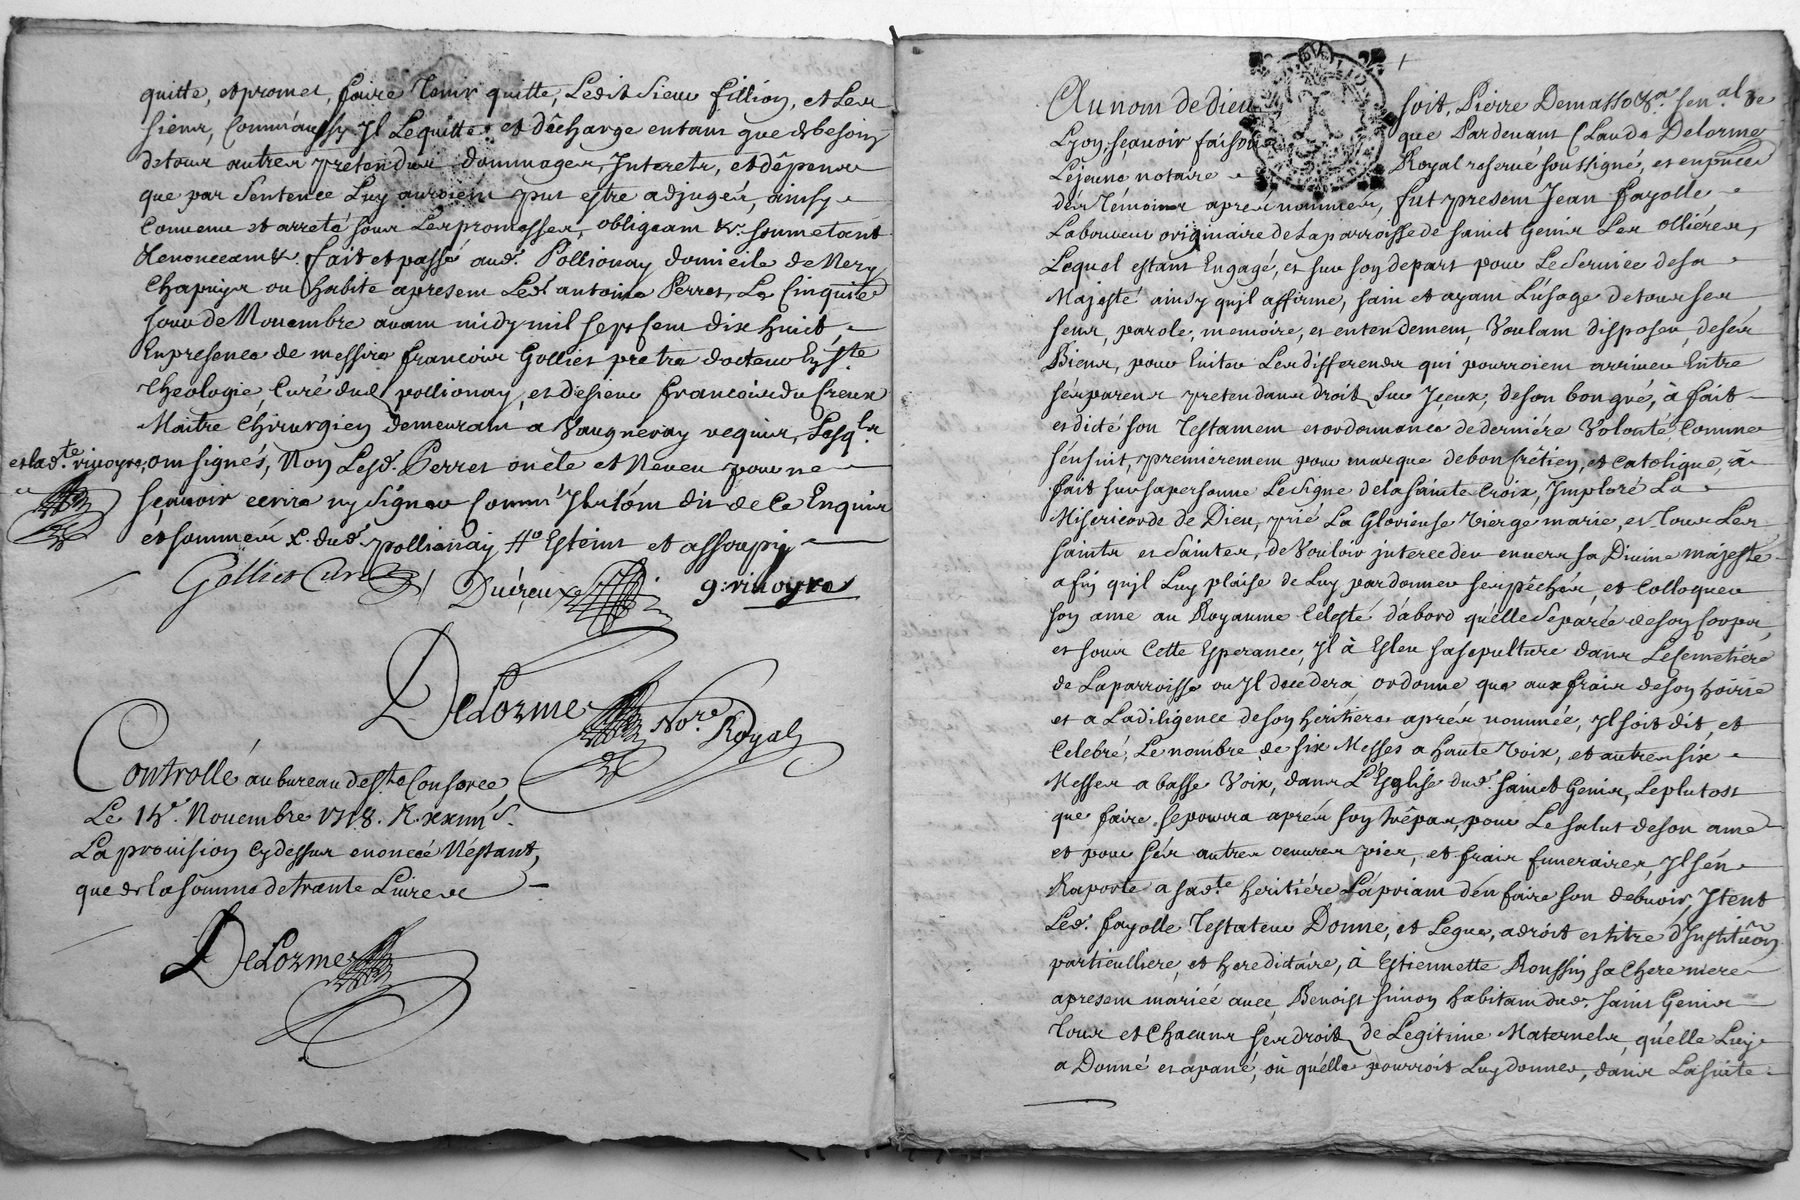 quitte, et promet, faire tenir quitte, Ledit Sieur fillion, et Les
siens, Comm'aussy Jl Lequitte et décharge entant que de besoin
detous autres pretendus dommages, Jnterets, et dépens
que par Sentence Luy auroient put estre adjugés, ainsy
Convenu et arreté sous Les promesses, obligeam &r. soumetant
Renonceam &r. fait et passé aud. Pollionay domicile de
Chapuys ou habite apresent Led. antoine Perret, Le Cinquie
Jour de Nouembre auam midy mil sept sent dix huit
En presence de messire francois Gollier pretre docteur En Ste
Theologie, Curé dud. pollionay, et de sieur francois du Creux
Maitre Chirurgien demeuram a Vaugneray requis, Lesqls
et lad.te viuoyre, om signés, Non Lesd. Perret oncle et Neueu pour ne
sçauoir ecrire ny signer Comm' Jls ont dit de Ce Enquis
et sommés &. dud. pollionay
Gollier Curé
Ducreux
g: viuoyre
DeLorme Nore. Royal
Controllé au bureau de Ste Consorce
Le 14e. Nouembre 1718. R. xxiiii s.
La prouision Cy dessus enoncée N'éstant,
que de la somme de trante Liures
DeLorme
Au nom de dieu soit, Pierre Demasso &a. sen.al de
Lyon, sçauoir faisons que Pardeuant Claude Delorme
Lejeune notaire Royal reserué soussigné, et en pnce
des Témoins aprés nommés, fut presem Jean fayolle
Laboureur originaire de La parroisse de sainct Genis Les ollieres,
Lequel estant Engagé, et sur son depart pour Le Seruice de sa
Majesté ainsy qu'jl affirme, sain et ayam L'usage de tous ses
sens, parole, memoire, et entendement, Voulam disposer, de ses
Biens, pour Euiter Les differends qui pourroient arriuer Entre
sés parens pretendans droit sur Jçeux, de son bon gré, à fait
et dicté son Testament et ordonnance de derniére Volonté, Comme
s'énsuit, premierement pour marque de bon Crétien, et Catolique, à
fait sur sa personne Le Signe de la sainte Croix, Jmploré La
Misericorde de Dieu, prié La Glorieuse Vierge marie, et tous Les
saints et saintes, de Vouloir jnterceder enuers sa Diuine majesté
afin qu'jl Luy plaise de Luy pardonner ses pêchés, et Colloquer
son ame au Royaume Celesté d'abord qu'élle Separée de son Corps,
et sous Cette Esperance, Jl à Esleu sa sepulture dans Le semetiére
de La parroisse ou Jl decedera, ordonne que aux frais de son hoirie
et a La diligence de son héritiere aprés nommée, Jl soit dit, et
Celebré, Le nombre de six Messes a haute Voix, et autres six
Messes a basse Voix, dans L'Eglise dud. sainct Genis, Le plutost
que faire se pourra aprés son trêpas, pour Le salut de son ame
et pour sés autres oeuures pies, et frais funeraires, Jl s'én
Raporte a sad.te heritiére La priam d'én faire son debuoir, Jtent
Led. fayolle Testateur Donne, et Legue, a droit et titre d'Jnstituõn
particulliere, et hereditaire, à Estiennette Roussin sa Chere mere
apresem mariéé auec Benoist simon habitam dud. saint Genis
Tous et Chacuns sés droits de Legitime Maternels, qu'élle Luy
a Donné et apané, où qu'élle pourroit Luy donner, dans La suite